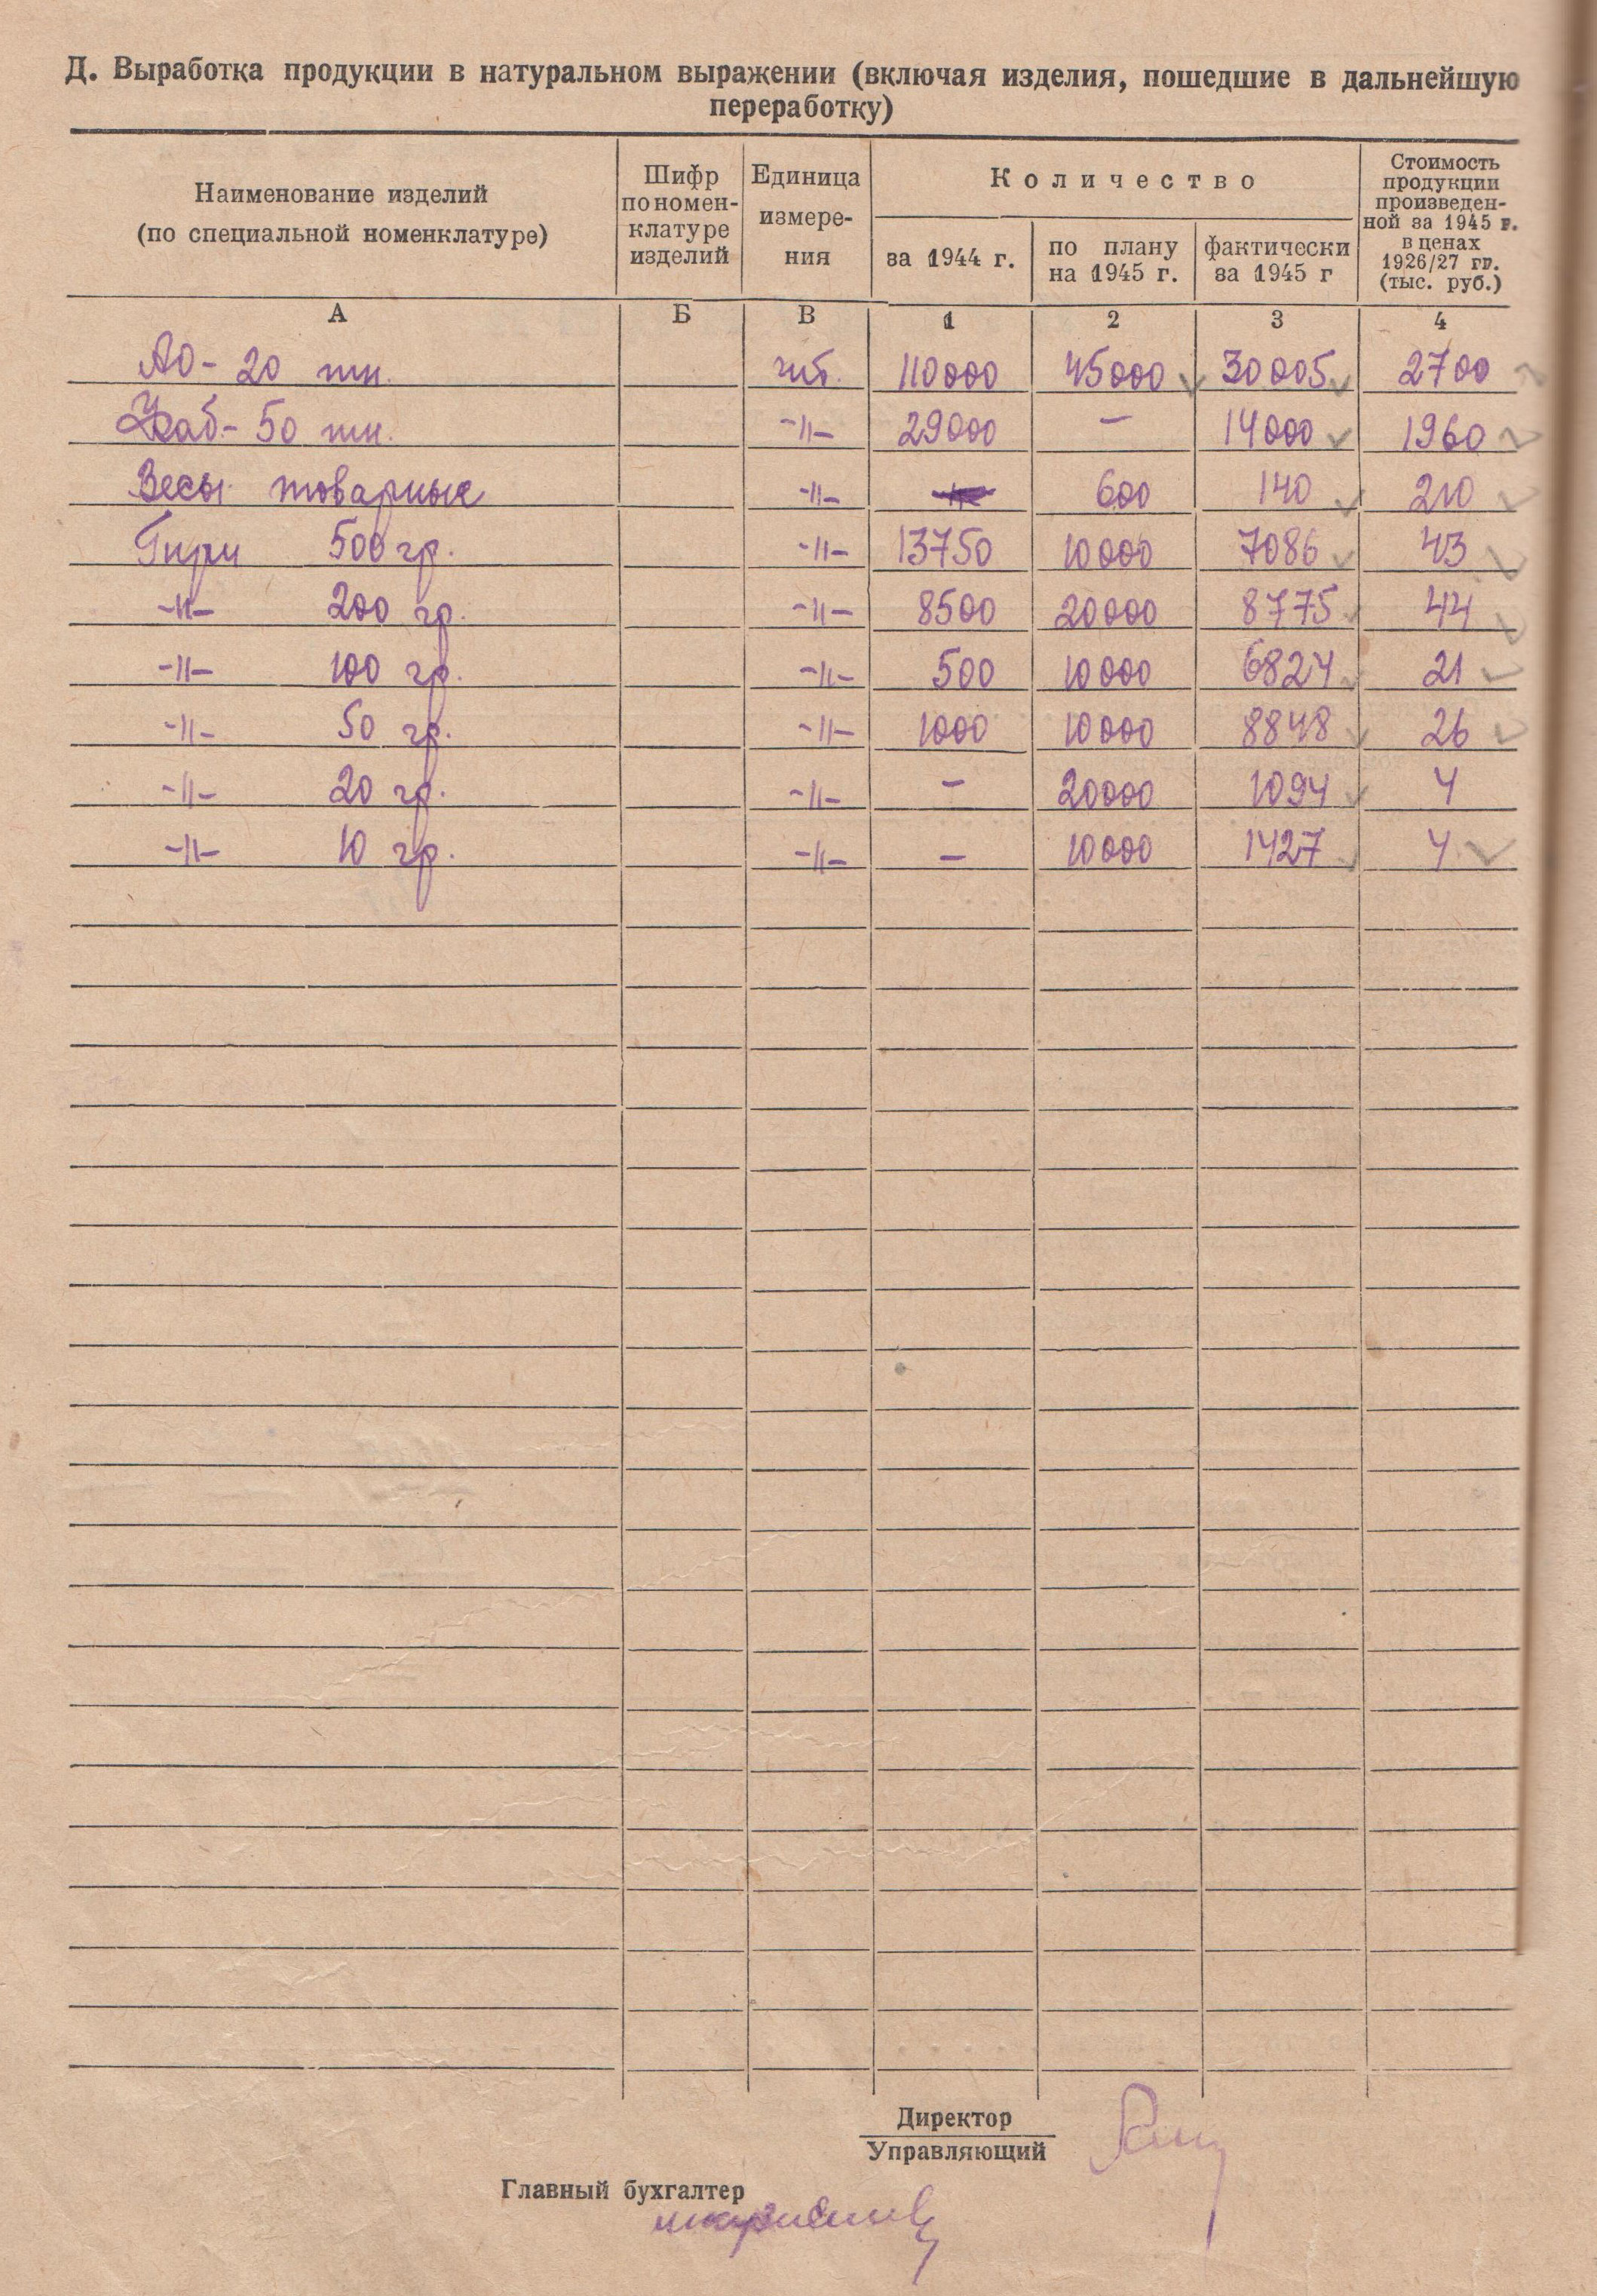 Д. Выработка продукции в натуральном выражении (включая изделия, пошедшие в дальнейшую
переработку)
Наименование изделий
(по специальной номенклатуре)
Шифр
по номен-
клатуре
изделий
Единица
измере-
ния
Количество
за 1944 г.
по плану
на 1945 г.
фактически
за 1945 г
Стоимость
продукции
произведен-
ной за 1945 г.
в ценах
1926/27 гг.
(тыс. руб.)
А Б В 1 2 3 4
АО- 20 шт. 110000 45000 30005 2700
50 29000 — 14000 1960
Весы товарные -||- 600 140 210
Гири 500 гр. -||- 13750 10000 7086 43
-||- 200 гр. -||- 8500 20000 8775 44
-||- 100 гр. -||- 500 10000 6824 21
-||- 50 гр. -||- 1000 10000 8848 26
-||- 20 гр. -||- — 20000 1094 4
-||- 10 гр. -||- — 10000 1427 4
Директор
Управляющий
Главный бухгалтер